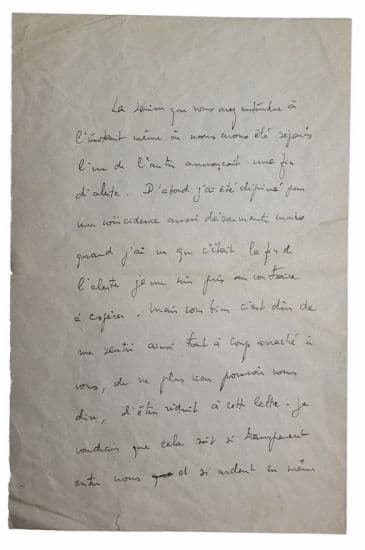 La sirène que vous avez entendue à
l'instant même où nous avons été séparés
l'un de l'autre annonçait une fin
d'alerte. D'abord j'ai été déprimé par
une coincidence aussi désarmante mais
quand j'ai vu que c'était la fin de
l'alerte je me suis pris au contraire
à espérer. Mais combien c'est dur de
me sentir ainsi tout à coup arraché à
vous, de ne plus rien pouvoir vous
dire, d'être réduit à cette lettre. Je
voudrais que cela soit si transparent
entre nous et si ardent en même